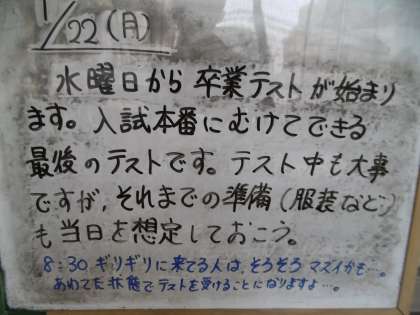 1/22(月)
水曜日から卒業テストが始まり
ます。入試本番にむけてできる
最後のテストです。テスト中も大事
ですが、それまでの準備(服装など)
も当日を想定しておこう。
8:30ギリギリに来てる人は、そろそろマズイかも…。
あわてた状態でテストを受けることになりますよ…。